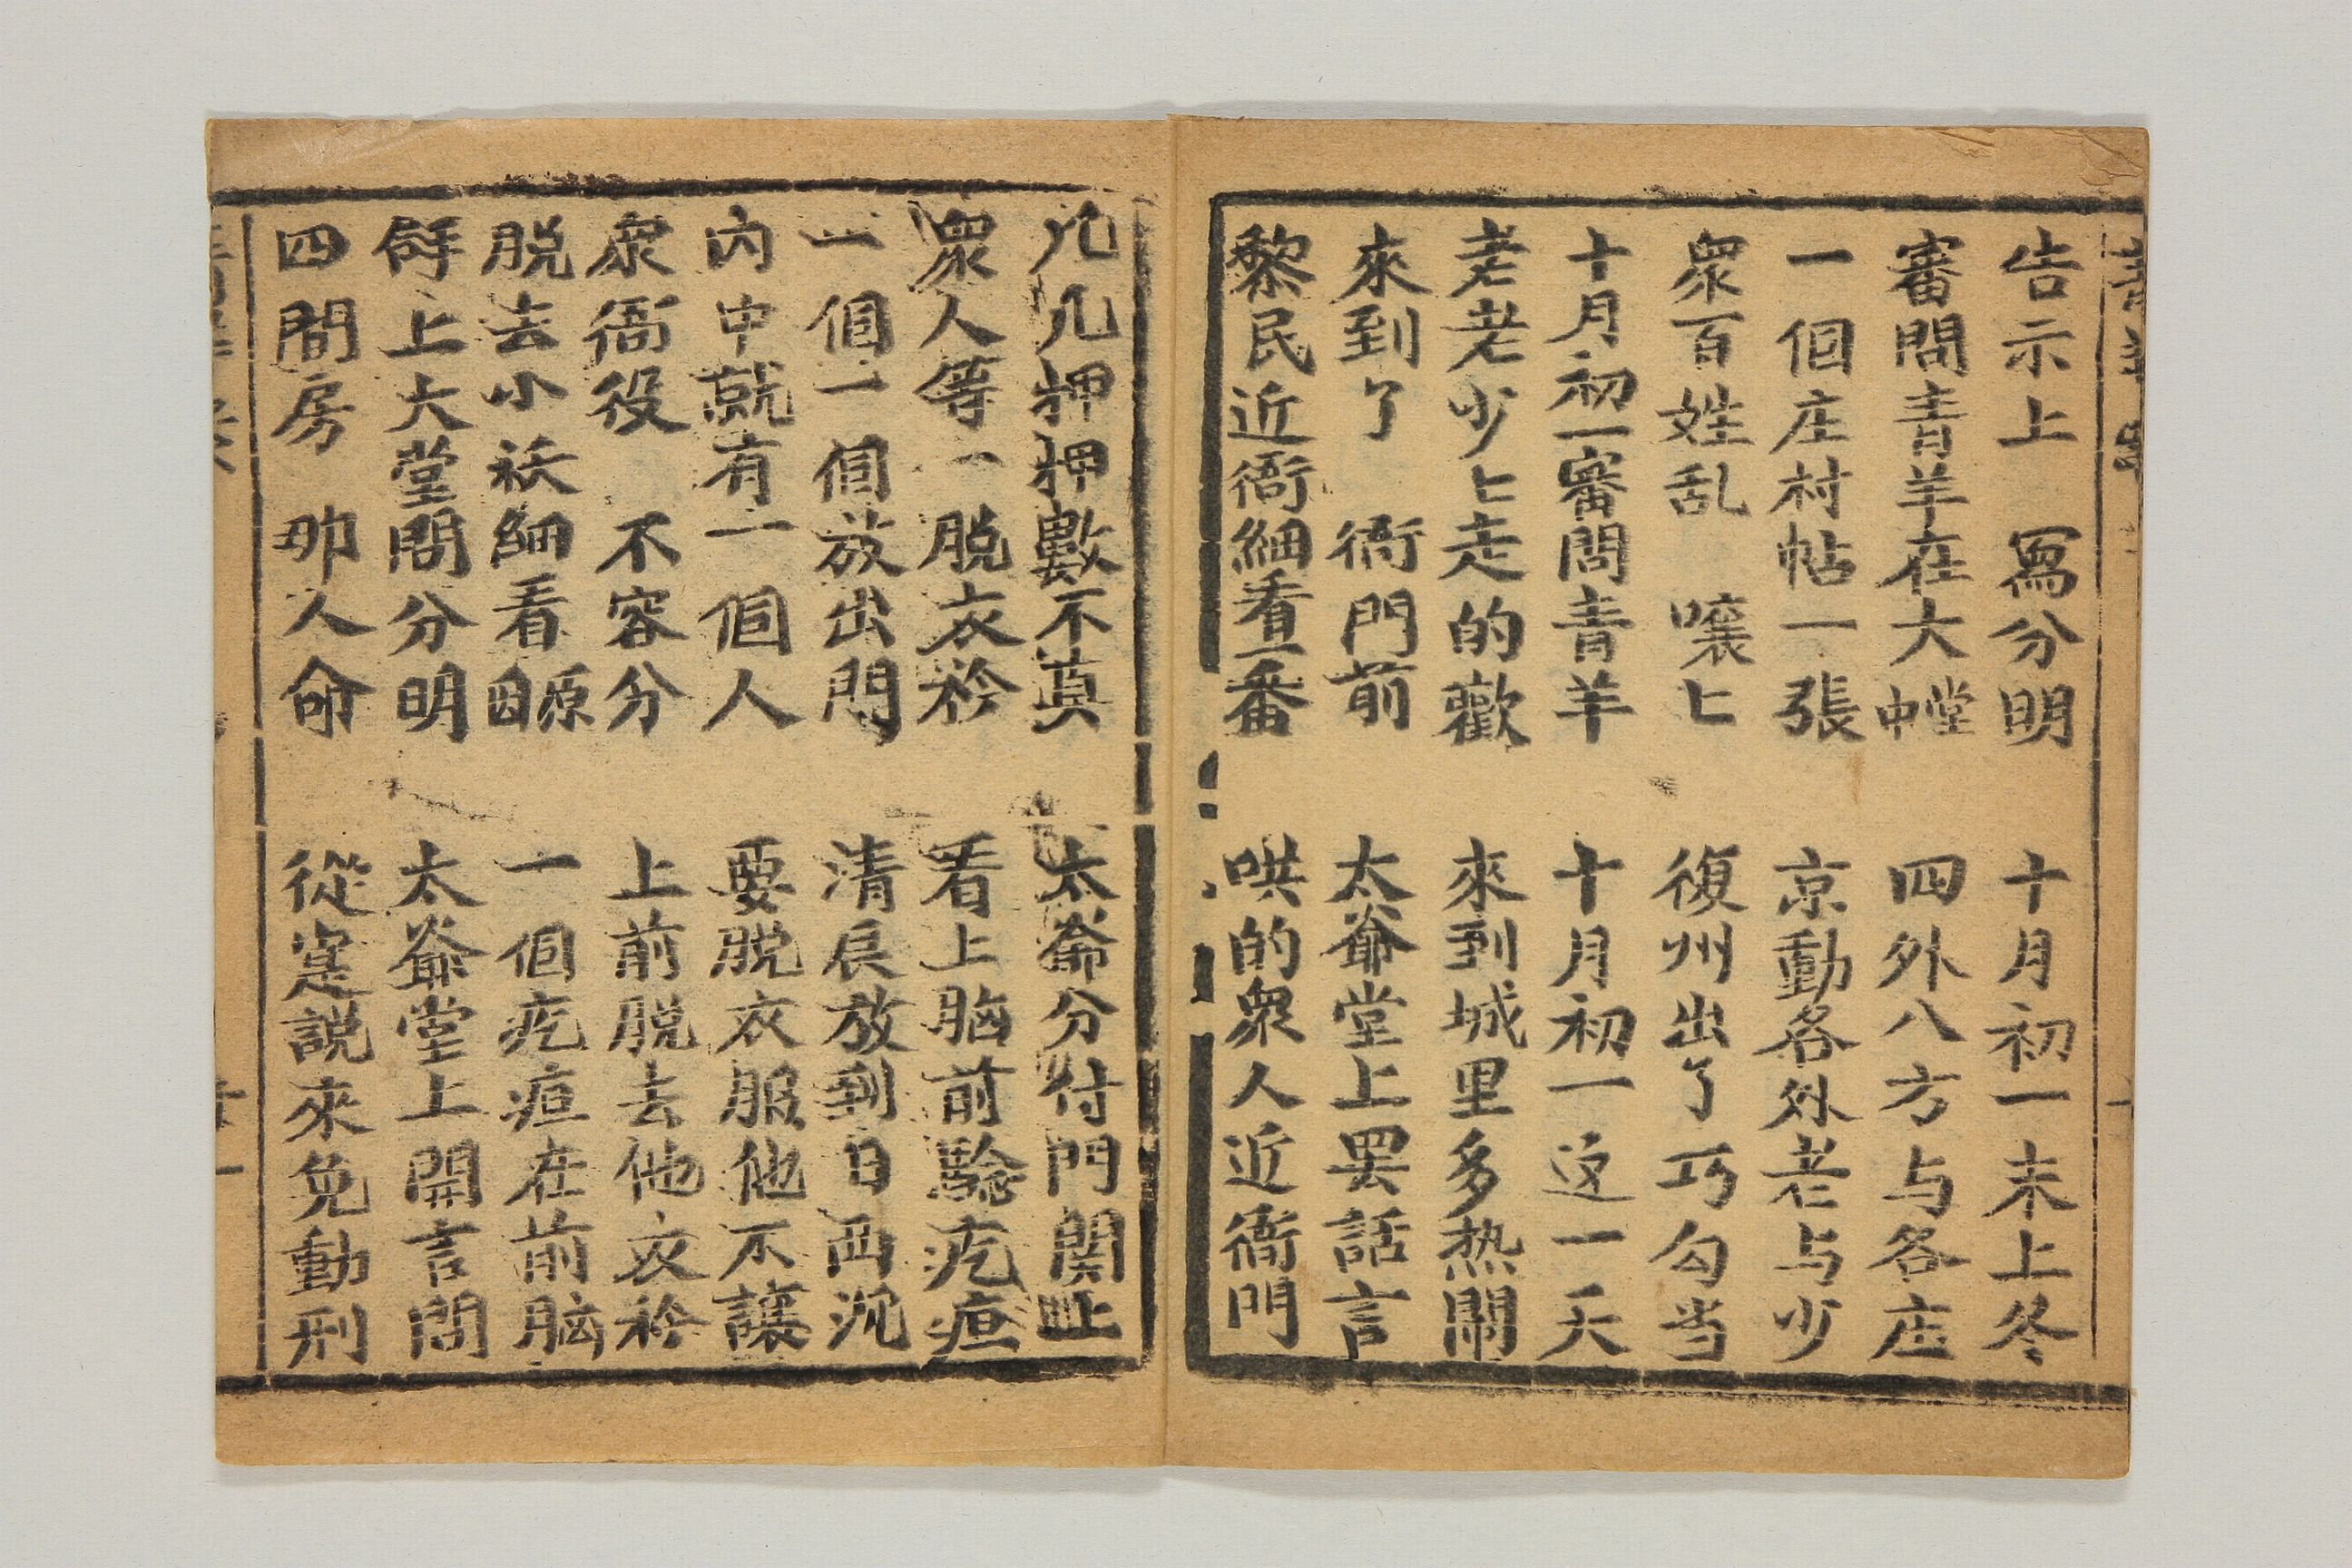 告示上 寫分明 十月初一未上冬
審問青羊在大堂中 四外八方与各庄
一個庄村帖一張 京動各外老与少
眾百姓乱 嚷〻 復州出了巧勾当
十月初一審問青羊 十月初一这一天
老老少〻走的歡 來到城里多热鬧
來到了 衙門前 太爺堂上罢話言
黎民近衙細看一番 哄的衆人近衙門
几几押押數不真 太爺分付門関上
眾人等一脱衣衿 看上胸前騐疙疸
一個一個放出門 清辰放到日西沉
內中就有一個人 要脱衣服他不讓
衆衙役 不容分 上前脱去他衣衿
脱去小袄細看 一個疙疸在前胸
上大堂問分明 太爺堂上開言問
四間房 那人命 從寔説來免動刑